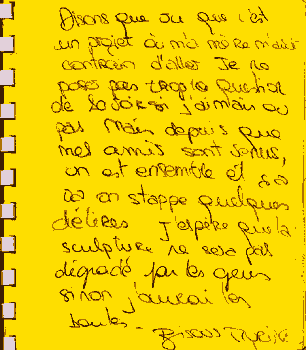 Disons que ou que c'est
un projet où ma mère m'avait
contrain d'aller Je ne
posais pas trop la question
de savoir si j'aimais ou
pas Mais depuis que
mes amis sont venus,
on est ensemble et
on stappe quelques
délires j'espère que la
sculpture ne sera pas
dégradé par les gens
sinon j'aurai les
boules - Bisous